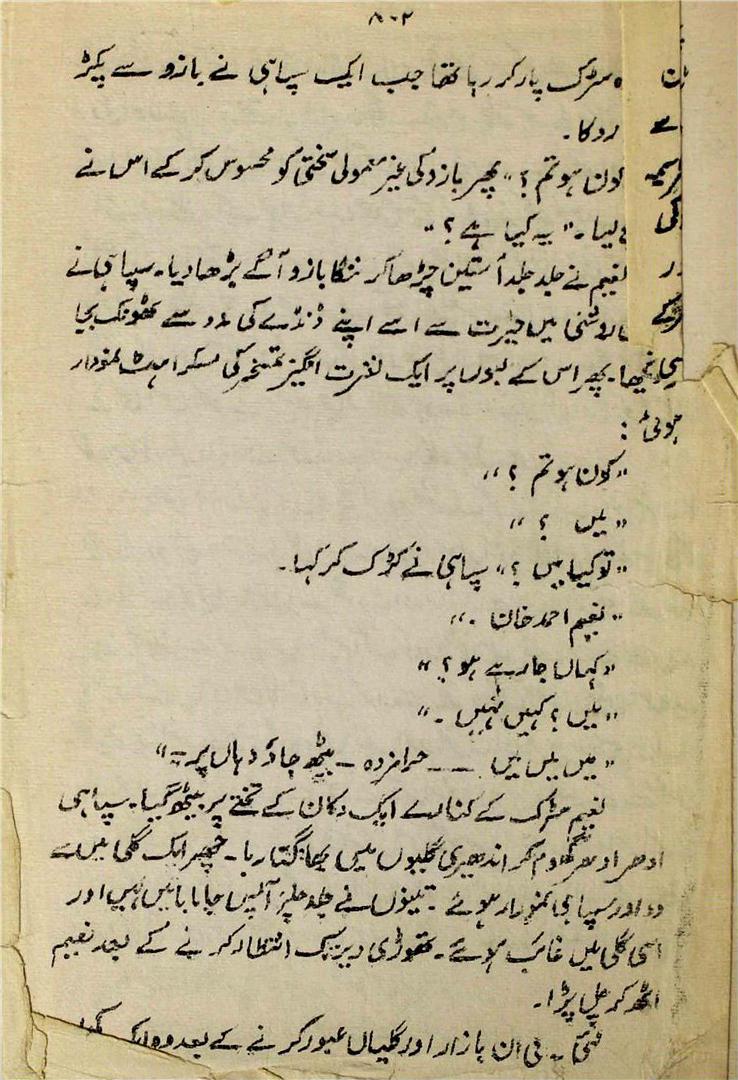 ۸۰۲
سڑک پار کر رہا تھا جب ایک سپاہی نے بازو سے پکڑ
روکا۔
کون ہو تم ؟" پھر بازو کی غیر معمولی سختی کو محسوس کر کے اس نے
لیا۔ "یہ کیا ہے ؟"
نعیم نے جلد جلد آستین چڑھا کر ننگا بازو آگے بڑھا دیا۔ سپاہی نے
روشنی میں حیرت سے اسے اپنے ڈنڈے کی مدد سے ٹھونک بجا
دیکھا۔ پھر اس کے لبوں پر ایک نفرت انگیز تمسخر کی مسکراہٹ نمودار
ہوئی :
"کون ہو تم ؟"
"میں ؟"
"تو کیا میں ؟" سپاہی نے کڑک کر کہا۔
"نعیم احمد خان ۔"
"کہاں جا رہے ہو ؟"
"میں ؟ کہیں نہیں ۔"
"میں میں میں ۔۔ حرامزدہ ۔ بیٹھ جاؤ وہاں پر ۔"
نعیم سڑک کے کنارے ایک دکان کے تختے پر بیٹھ گیا۔ سپاہی
ادھر ادھر گھوم کر اندھیری گلیوں میں جھانکتا رہا۔ پھر ایک گلی میں سے
دو اور سپاہی نمودار ہوئے ۔ تینوں نے جلد جلد آپس میں باتیں کیں اور
اسی گلی میں غائب ہو گئے۔ تھوڑی دیر تک انتظار کرنے کے بعد نعیم
اٹھ کر چل پڑا۔
کئی ایک بازار اور گلیاں عبور کرنے کے بعد وہ ایک